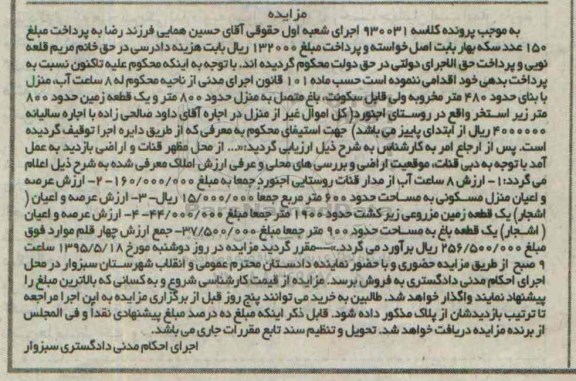 مزایده
به موجب پرونده کلاسه ۹۳۰۰۳۱ اجرای شعبه اول حقوقی آقای حسین همایی فرزند رضا به پرداخت مبلغ
۱۵۰ عدد سکه بهار بابت اصل خواسته و پرداخت مبلغ ۱۳۲۰۰۰ ریال بابت هزینه دادرسی در حق خانم مریم قلعه
نویی و پرداخت حق الاجرای دولتی در حق دولت محکوم گردیده اند. با توجه به اینکه محکوم علیه تاکنون نسبت به
پرداخت بدهی خود اقدامی ننموده است حسب ماده ۱۰۱ قانون اجرای مدنی از ناحیه محکوم له ۸ ساعت آب، منزل
با بنای حدود ۴۸۰ متر مخروبه ولی قابل سکونت، باغ متصل به منزل حدود ۸۰۰ متر و یک قطعه زمین حدود ۸۰۰
متر زیر استخر واقع در روستای اجنورد( کل اموال غیر از منزل در اجاره آقای داود صالحی زاده با اجاره سالیانه
۴۰۰۰۰۰۰ ریال از ابتدای پاییز می باشد) جهت استیفای محکوم به معرفی که از طریق دایره اجرا توقیف گردیده
است. پس از ارجاع امر به کارشناس به شرح ذیل ارزیابی گردید:«... از محل مظهر قنات و اراضی بازدید به عمل
آمد با توجه به دبی قنات، موقعیت اراضی و بررسی های محلی و عرفی ارزش املاک معرفی شده به شرح ذیل اعلام
می گردد: ۱- ارزش ۸ ساعت آب از مدار قنات روستایی اجنورد جمعا به مبلغ ۱۶۰/۰۰۰/۰۰۰- ۲- ارزش عرصه
و اعیان منزل مسکونی به مساحت حدود ۶۰۰ متر مربع جمعا ۱۵/۰۰۰/۰۰۰ ریال- ۳- ارزش عرصه و اعیان (
اشجار) یک قطعه زمین مزروعی زیر کشت حدود ۱۹۰۰ متر جمعا مبلغ ۴۴/۰۰۰/۰۰۰- ۴- ارزش عرصه و اعیان
( اشجار) یک قطعه باغ به مساحت حدود ۹۰۰ متر جمعا مبلغ ۳۷/۵۰۰/۰۰۰- جمع ارزش چهار قلم موارد فوق
مبلغ ۲۵۶/۵۰۰/۰۰۰ ریال برآورد می گردد.— مقرر گردید مزایده در روز دوشنبه مورخ ۱۳۹۵/۵/۱۸ ساعت
۹ صبح از طریق مزایده حضوری و با حضور نماینده دادستان محترم عمومی و انقلاب شهرستان سبزوار در محل
اجرای احکام مدنی دادگستری به فروش برسد. مزایده از قیمت کارشناسی شروع و به کسانی که بالاترین مبلغ را
پیشنهاد نمایند واگذار خواهد شد. طالبین به خرید می توانند پنج روز قبل از برگزاری مزایده به این اجرا مراجعه
تا ترتیب بازدیدشان از پلاک مذکور داده شود. قابل ذکر اینکه مبلغ ده درصد مبلغ پیشنهادی نقدا و فی المجلس
از برنده مزایده دریافت خواهد شد. تحویل و تنظیم سند تابع مقررات جاری می باشد.
اجرای احکام مدنی دادگستری سبزوار